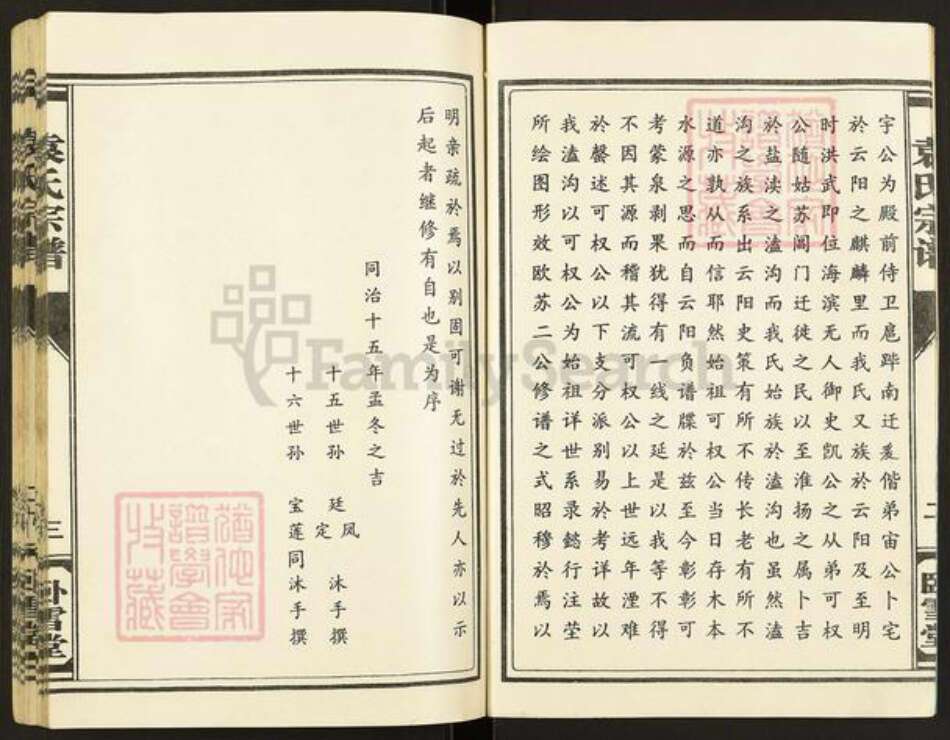 宇公为殿前侍卫扈跸南迁爰偕弟宙公卜宅
於云阳之麒麟里而我氏又族於云阳及至明
时洪武即位海滨无人御史凯公之从弟可权
公随姑苏阊门迁徙之民以至淮扬之属卜吉
於盐渎之溘沟而我氏始族於溘沟也虽然溘
沟之族系出云阳史策有所不传长老有所不
道亦孰从而信耶然始祖可权公当日存木本
水源之思而自云阳负谱牒於兹至今彰彰可
考蒙泉剥果犹得有一线之延是以我等不得
不因其源而稽其流可权公以上世远年湮难
於罄述可权公以下支分派别易於考详故以
我溘沟以可权公为始祖详世系录懿行注茔
所绘图形效欧苏二公修谱之式昭穆於焉以
袁氏宗谱
二
卧雪堂
明亲疏於焉以别固可谢无过於先人亦以示
后起者继修有自也是为序
同治十五年孟冬之吉
十五世孙 廷凤 定 沐手撰
十六世孙 宝莲同沐手撰
袁氏宗谱
三
卧雪堂
FamilySearch